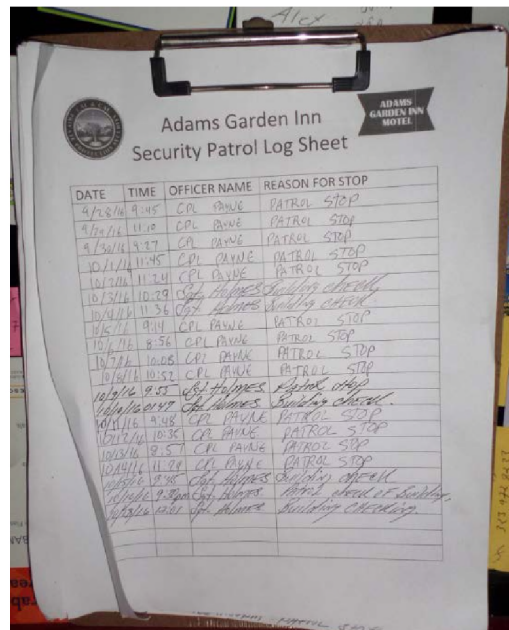 Alex
ADAMS
GARDEN INN
MOTEL
Adams Garden Inn
Security Patrol Log Sheet
DATE TIME OFFICER NAME REASON FOR STOP
9/28/16 9:45 CPL PAYNE PATROL STOP
9/29/16 11:10 CPL PAYNE PATROL STOP
9/30/16 9:27 CPL PAYNE PATROL STOP
10/1/16 11:45 CPL PAYNE PATROL STOP
10/2/16 11:24 CPL PAYNE PATROL STOP
10/3/16 10:29 Sgt Holmes Building check
10/4/16 11:56 Sgt Holmes Building check
10/5/16 9:14 CPL PAYNE PATROL STOP
10/6/16 8:56 CPL PAYNE PATROL STOP
10/7/16 10:08 CPL PAYNE PATROL STOP
10/8/16 10:52 CPL PAYNE PATROL STOP
10/9/16 9:55 Sgt Holmes Patrol stop
10/10/16 0147 Sgt Holmes Building check
10/11/16 9:48 CPL PAYNE PATROL STOP
10/12/16 10:35 CPL PAYNE PATROL STOP
10/13/16 8:57 CPL PAYNE PATROL STOP
10/14/16 CPL PAYNE PATROL STOP
10/15/16 9:45 Sgt Holmes Building check
Sgt Holmes check of Building.
12:01 Sgt Holmes Building Checking